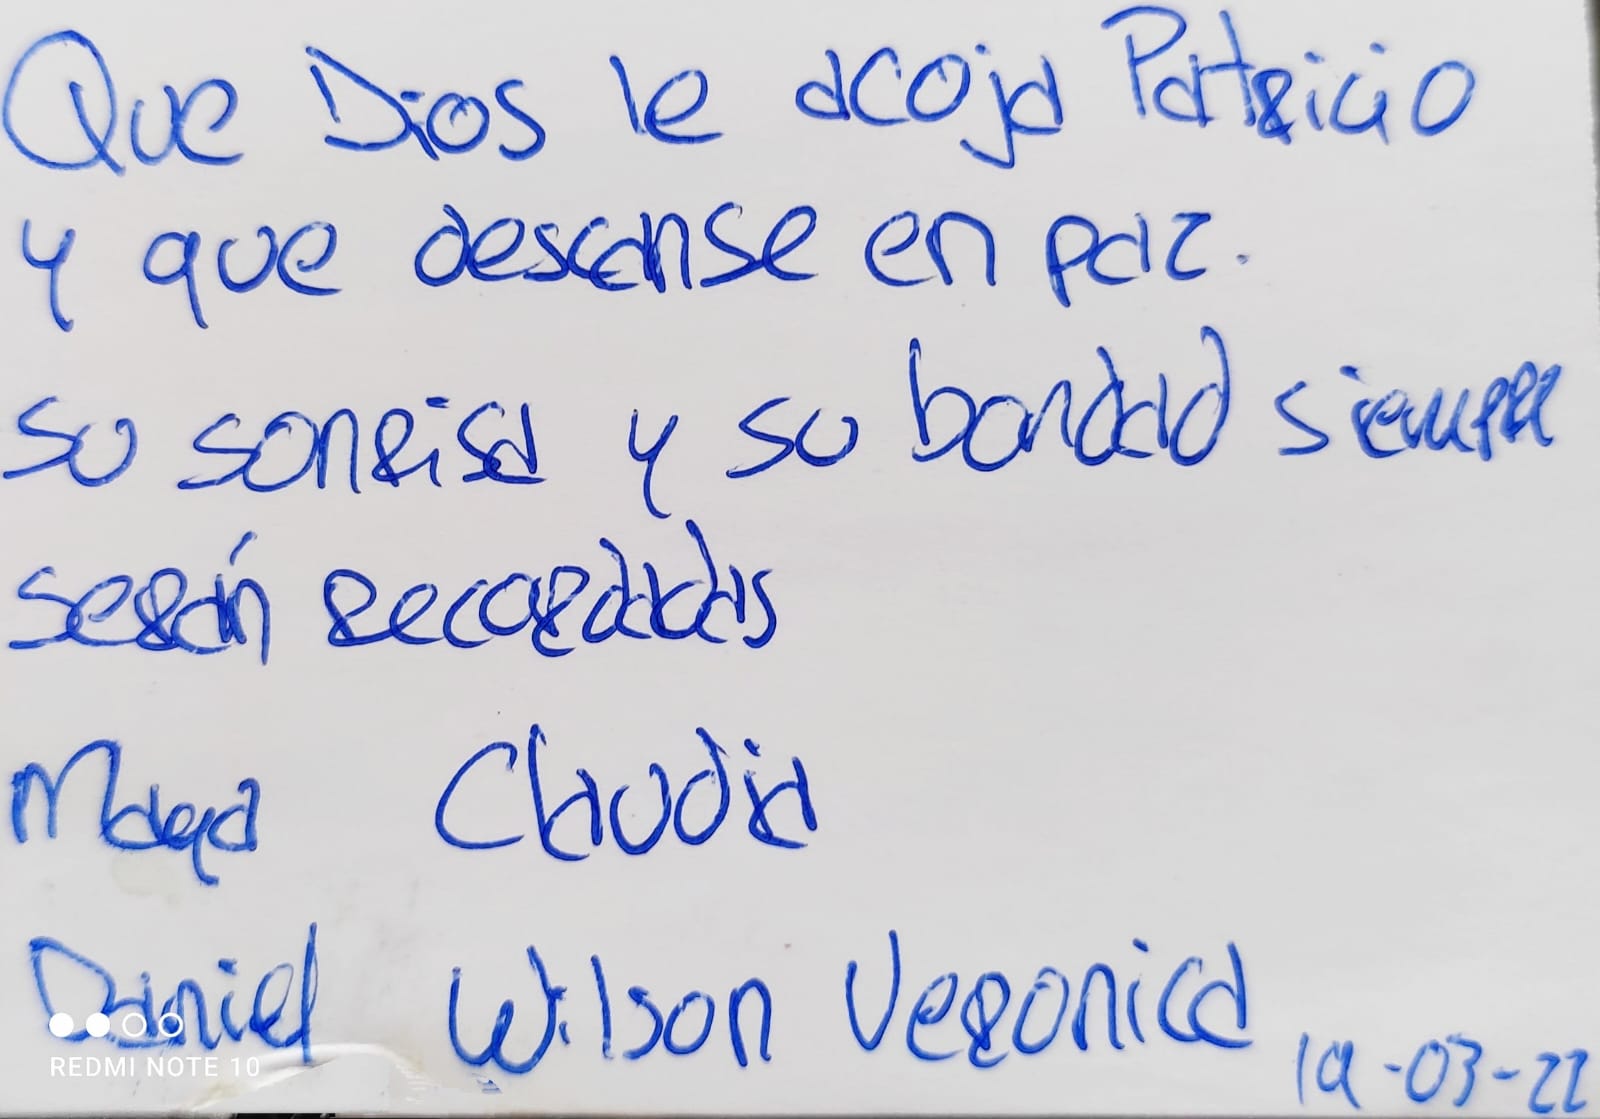 Que Dios le acoja Patricio
y que descanse en paz.
su sonrisa y su bondad siempre
serán recordadas
Maqa Claudia
Daniel Wilson Veronica
19-03-22
REDMI NOTE 10